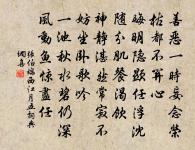 善惡一時妄念榮
枯都不關心
晦明隱顯任浮沉
隨分飢餐渴飲
神靜湛然常寂不
妨坐臥歌吟
一池秋水碧仍深
風動魚驚盡任
張伯端西江月